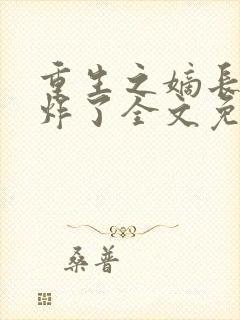 重生之嫡长
炸了全文免
桑普